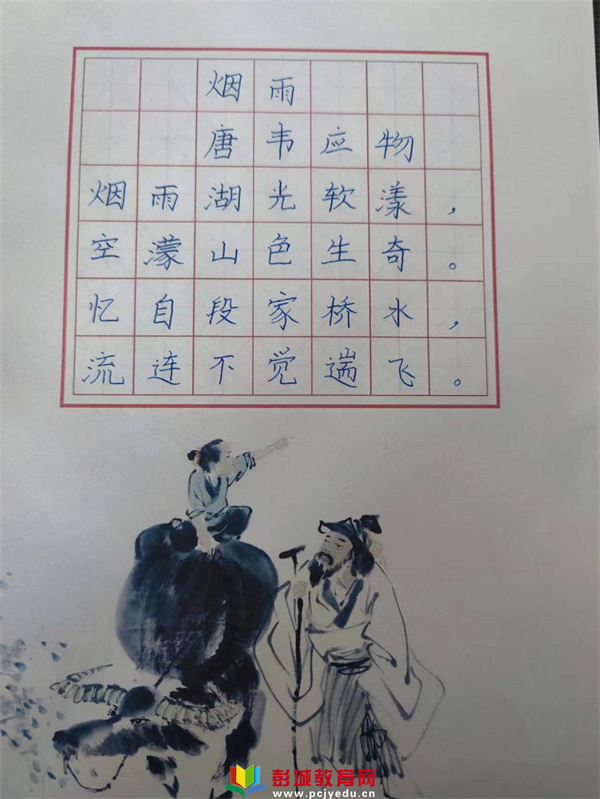 烟雨
唐韦应物
烟雨湖光软漾，
空濛山色生奇。
忆自段家桥水，
流连不觉遄飞。
彭城教育网
www.pcjyedu.cn